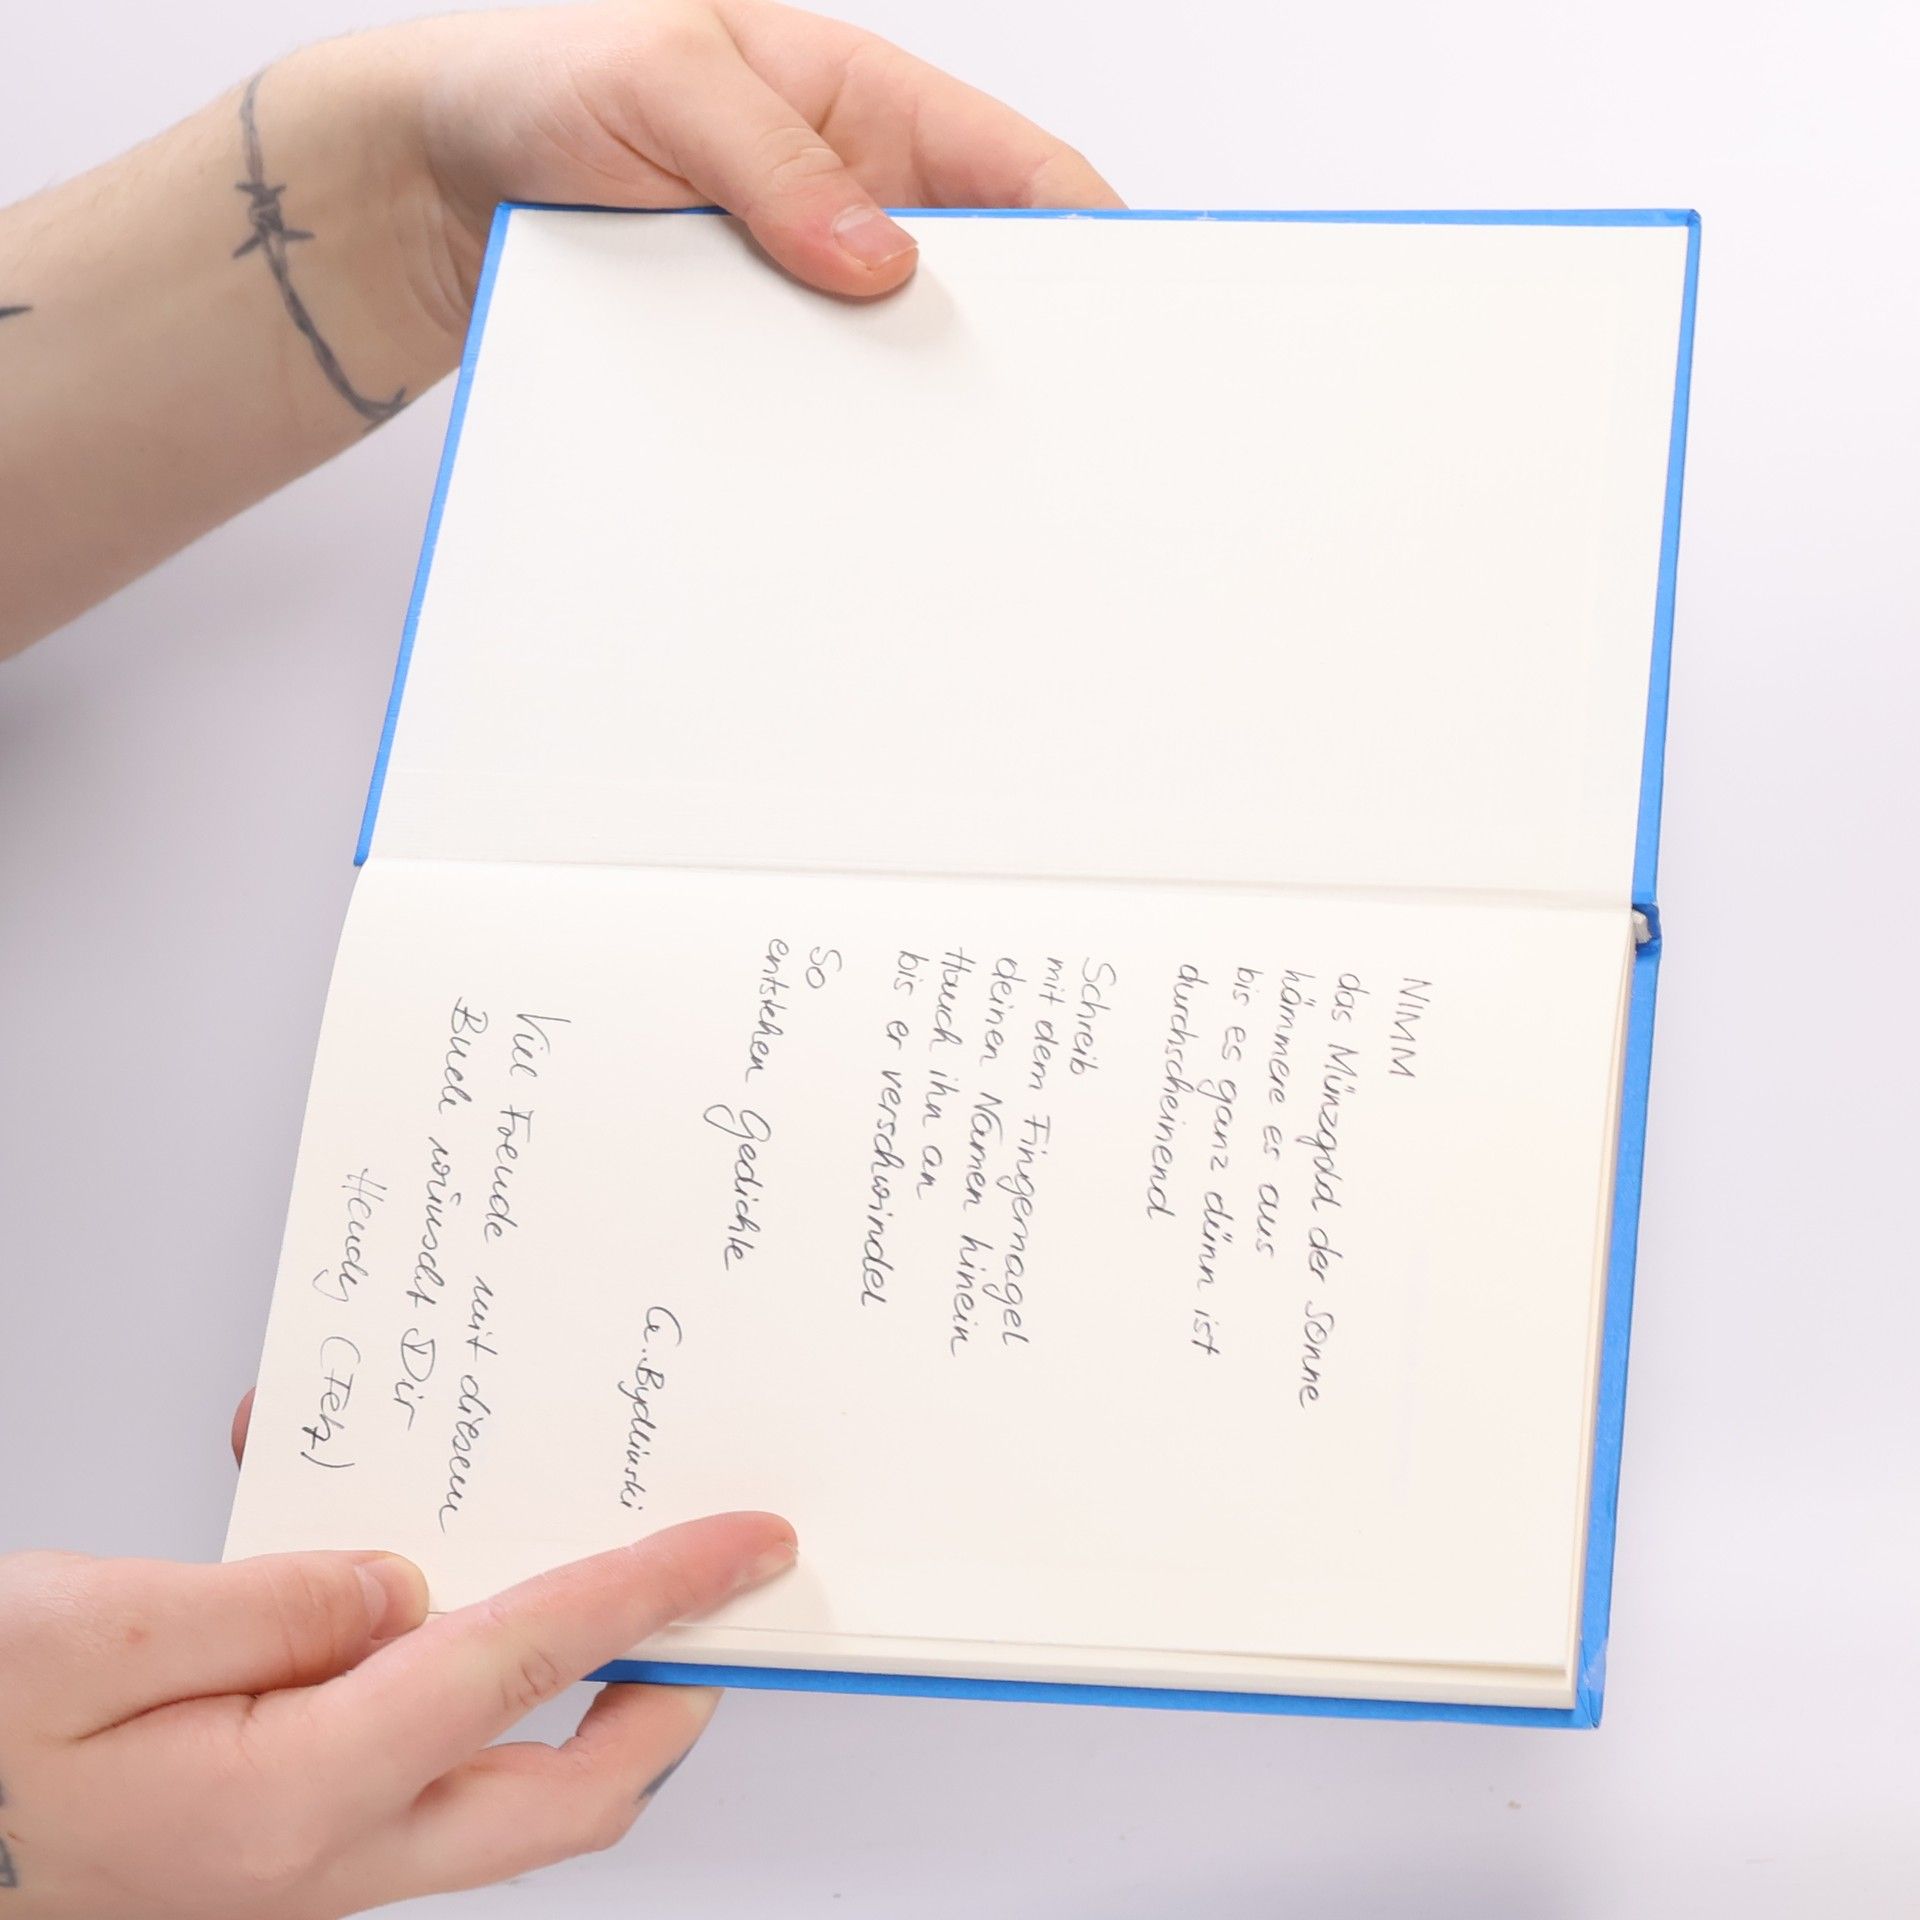 NIMM
das Münzgold der Sonne
hämmere es aus
bis es ganz dünn ist
durchscheinend
Schreib
mit dem Fingernagel
deinen Namen hinein
Hauch ihn an
bis er verschwindet
So
entstehen Gedichte
G. Bydlinski
Viel Freude mit diesem
Buch wünscht Dir
Hendy (Fetz)